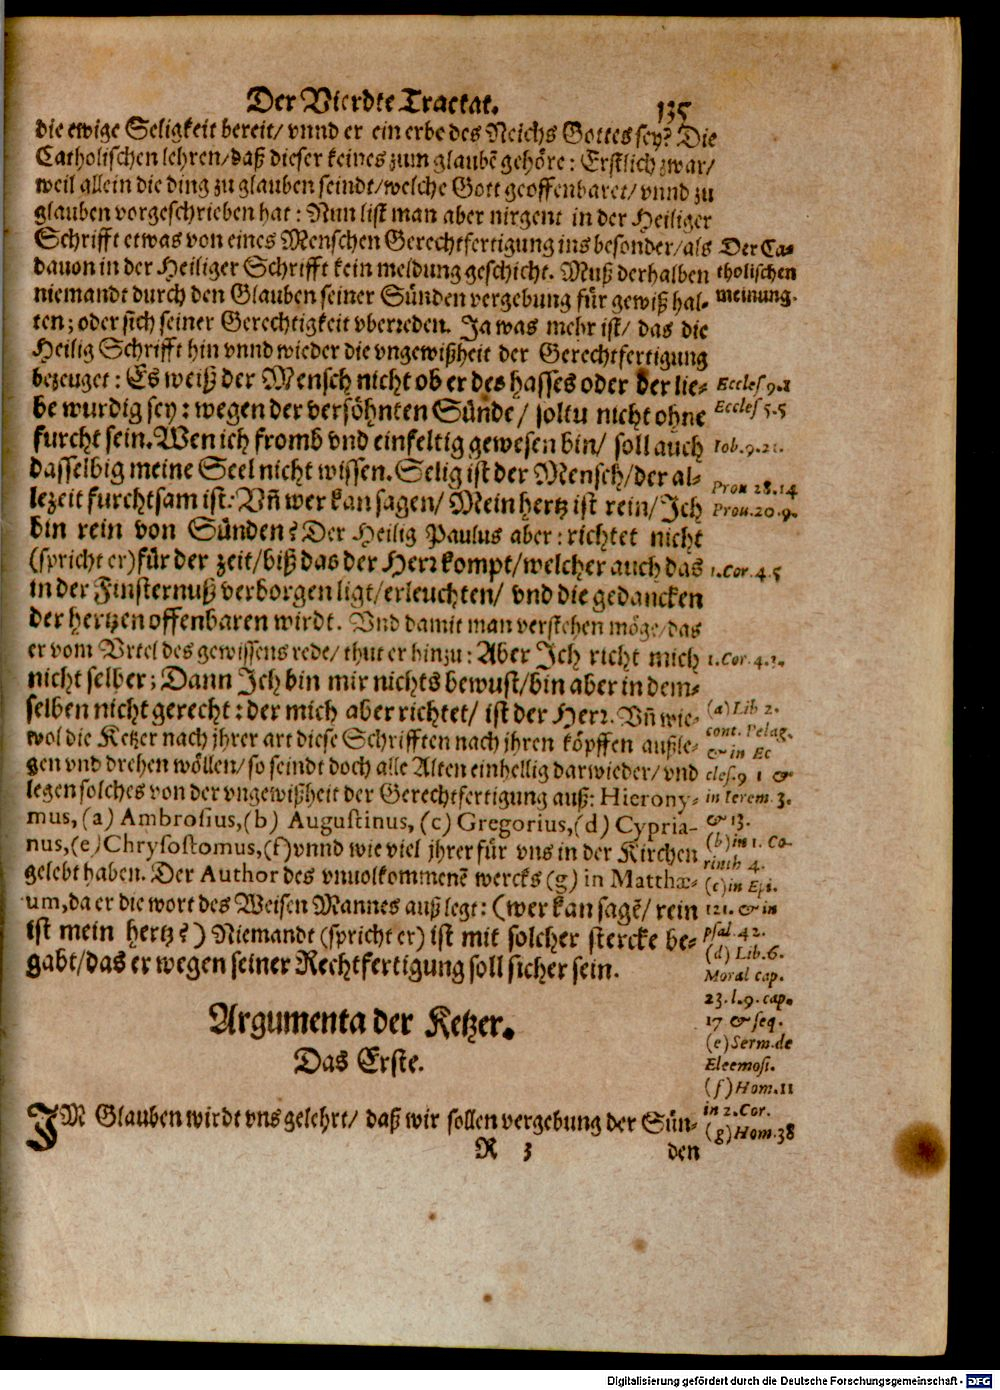 Der Vierdte Tractat. 135
die ewige Seligkeit bereit/ vnnd er ein erbe des Reichs Gottes sey? Die
Catholischen lehren/daß dieser keines zum glaubē gehöre: Erstlich zwar/
weil allein die ding zu glauben seindt/welche Gott geoffenbaret/ vnnd zu
glauben vorgeschrieben hat: Nun list man aber nirgent in der Heiliger
Schrifft etwas von eines Menschen Gerechtfertigung ins besonder/als
dauon in der Heiliger Schrifft kein meldung geschicht. Muß derhalben
niemandt durch den Glauben seiner Sünden vergebung für gewiß hal-
ten; oder sich seiner Gerechtigkeit vberreden. Ja was mehr ist/ das die
Heilig Schrifft hin vnnd wieder die vngewißheit der Gerechtfertigung
bezeuget: Es weiß der Mensch nicht ob er des hasses oder der lie-
be wurdig sey: wegen der versöhnten Sünde/ soltu nicht ohne
furcht sein. Wen ich fromb vnd einfeltig gewesen bin/ soll auch
dasselbig meine Seel nicht wissen. Selig ist der Mensch/der al-
lezeit furchtsam ist: Vñ wer kan sagen/ Mein hertz ist rein/ Ich
bin rein von Sünden? Der Heilig Paulus aber: richtet nicht
(spricht er) für der zeit/biß das der Herr kompt/welcher auch das
in der Finsternuß verborgen ligt/erleuchten/ vnd die gedancken
der hertzen offenbaren wirdt. Vnd damit man verstehen möge/das
er vom Vrtel des gewissens rede/ thut er hinzu: Aber Ich richt mich
nicht selber; Dann Ich bin mir nichts bewust/bin aber in dem-
selben nicht gerecht: der mich aber richtet/ ist der Herr. Vñ wie-
wol die Ketzer nach jhrer art diese Schrifften nach jhren köpffen außle-
gen vnd drehen wöllen/ so seindt doch alle Alten einhellig darwieder/ vnd
legen solches von der vngewißheit der Gerechtfertigung auß: Hierony-
mus, (a) Ambrosius, (b) Augustinus, (c) Gregorius, (d) Cypria-
nus, (e) Chrysostomus, (f) vnnd wie viel jhrer für vns in der Kirchen
gelebt haben. Der Author des vnuolkommenē wercks (g) in Matthæ-
um, da er die wort des Weisen Mannes auß legt: (wer kan sagē/ rein
ist mein hertz?) Niemandt (spricht er) ist mit solcher stercke be-
gabt/das er wegen seiner Rechtfertigung soll sicher sein.
Der Ca-
tholischen
meinung.
Eccles 9.1
Eccles 5.5
Iob. 9.21.
Prou 28.14
Prou. 20.9.
1. Cor. 4.5
1. Cor. 4.3.
(a) Lib 2.
cont. Pelag.
& in Ec
cles. 9 1 &
in Ierem 3.
& 13.
(b) in 1. Co-
rinth 4.
(c) in Epi.
121. & in
psal. 42.
(d) Lib. 6.
Moral cap.
23. l. 9. cap.
17 & seq.
(e) Serm. de
Eleemosi.
(f) Hom. 11
in 2. Cor.
(g) Hom. 38
Argumenta der Ketzer.
Das Erste.
IM Glauben wirdt vns gelehrt/ daß wir sollen vergebung der Sün-
R 3 den
Digitalisierung gefördert durch die Deutsche Forschungsgemeinschaft - DFG